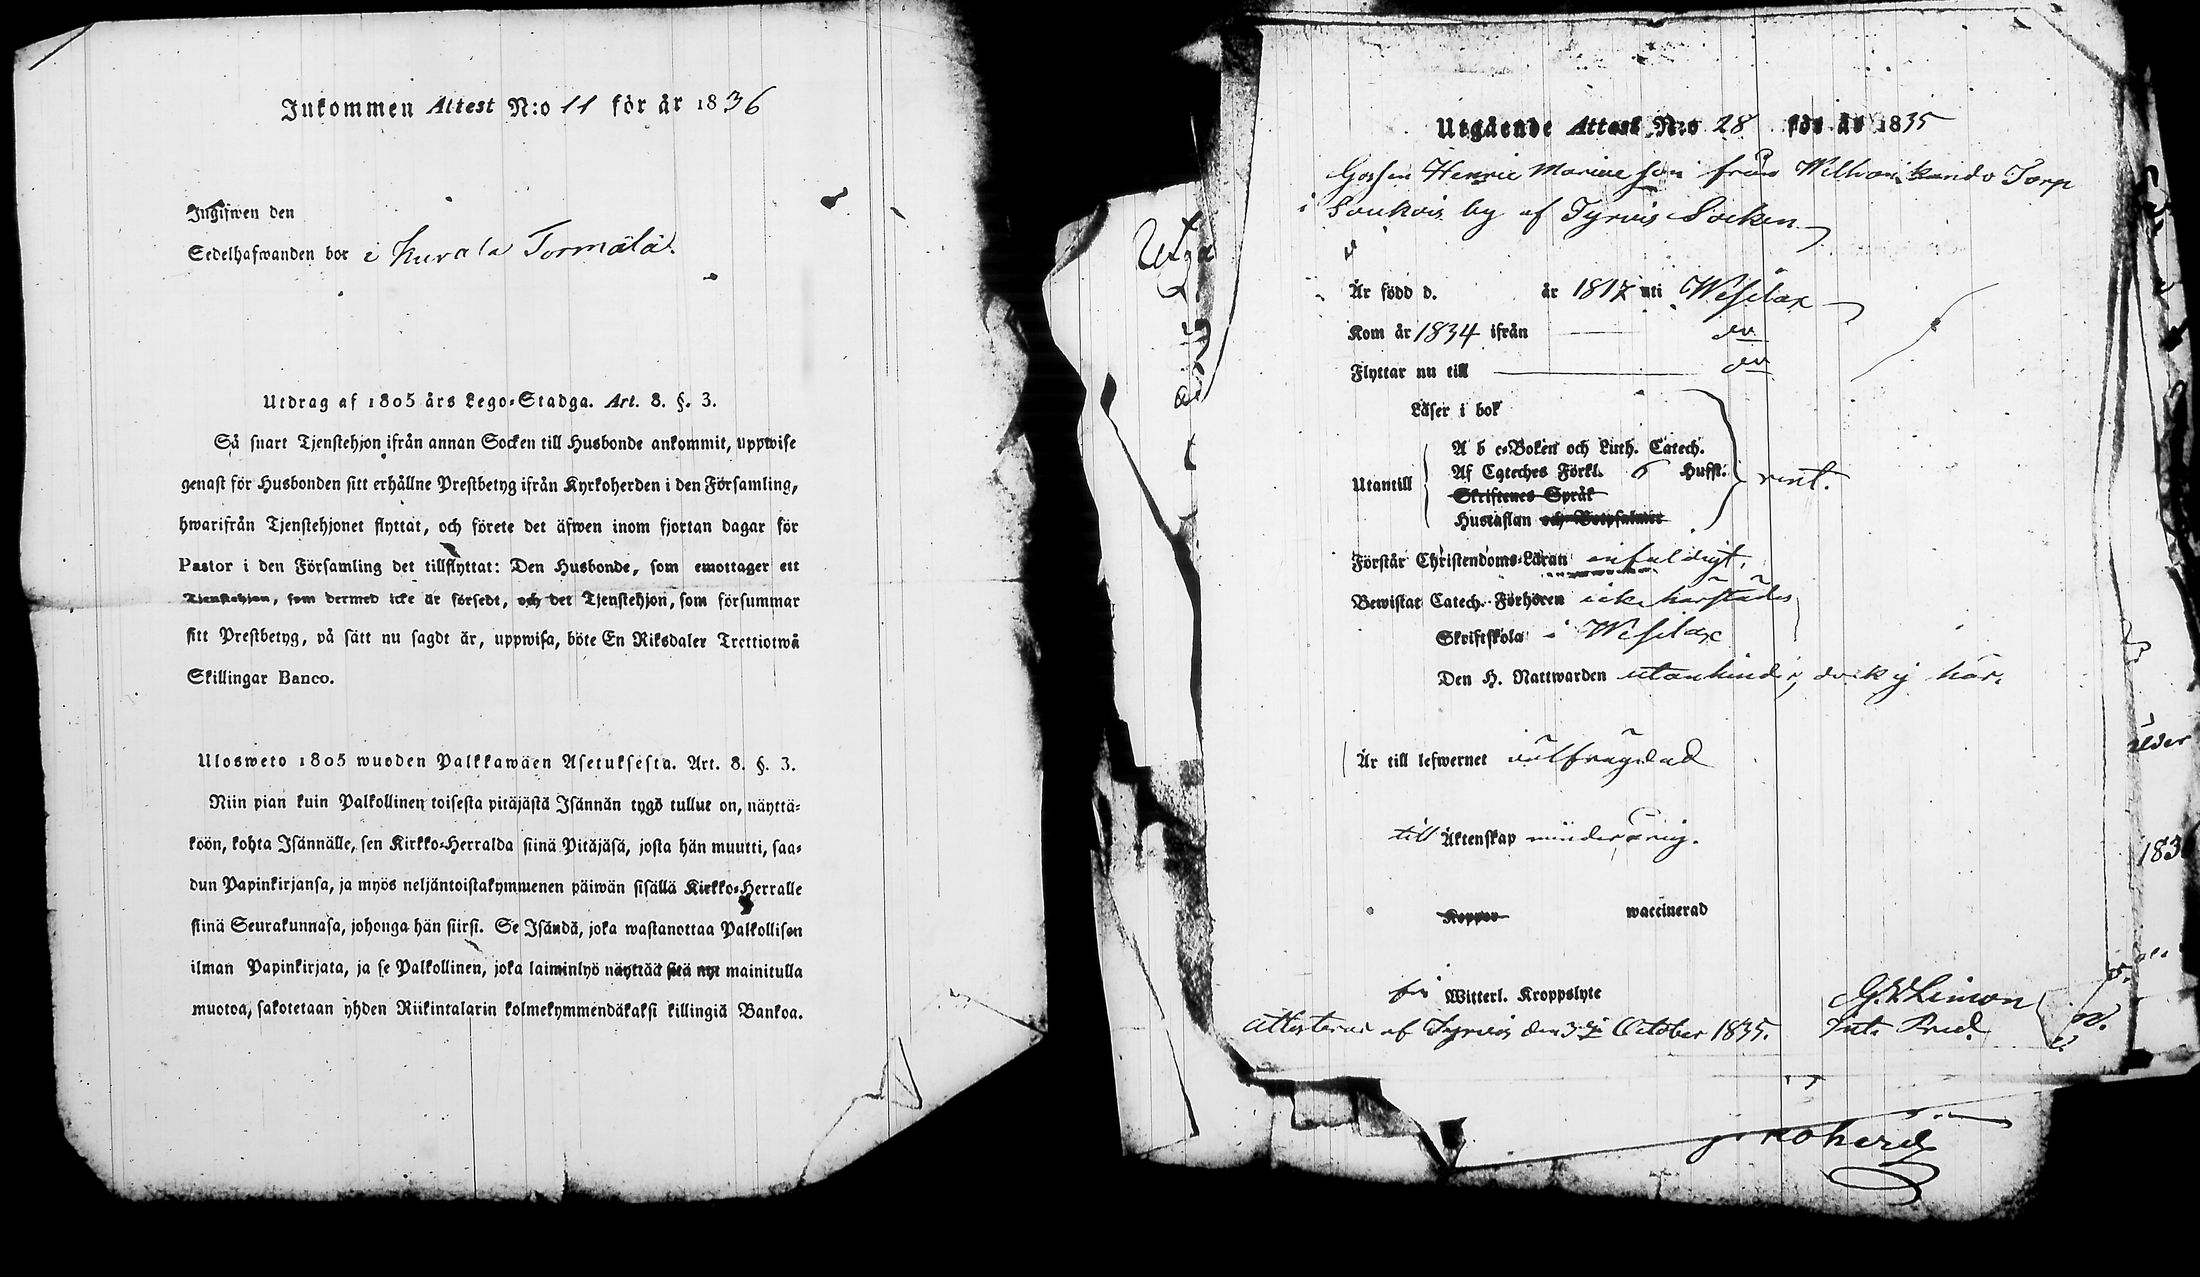 Inkommen Attest N:o 11 för år 1836
Ingifwen den
Sedelhafwanden bor i Kurala Tormälä.
Utdrag af 1805 års Lego-Stadga. Art. 8. §. 3.
Så snart Tjenstehjon ifrån annan Socken till Husbonde ankommit, uppwise
genast för Husbonden sitt erhållne Prestbetyg ifrån Kyrkoherden i den Församling,
hwarifrån Tjenstehjonet flyttat, och förete det äfwen inom fjortan dagar för
Pastor i den Församling det tillflyttat: Den Husbonde, som emottager ett
Tjenstehjon, som dermed icke är försedt, och det Tjenstehjon, som försummar
sitt Prestbetyg, på sätt nu sagdt är, uppwisa, böte En Riksdaler Trettiotwå
Skillingar Banco.
Ulosweto 1805 wuoden Palkkawäen Asetuksesta. Art. 8. §. 3.
Niin pian kuin Palkollinen toisesta pitäjästä Isännän tygö tullut on, näyttä-
köön, kohta Isännälle, sen Kirkko-Herralda siinä Pitäjäsä, josta hän muutti, saa-
dun Papinkirjansa, ja myös neljäntoistakymmenen päiwän sisällä Kirkko-Herralle
siinä Seurakunnasa, johonga hän siirsi. Se Isändä, joka wastanottaa Palkollisen
ilman Papinkirjata, ja se Palkollinen, joka laiminlyö näyttää sitä nyt mainitulla
muotoa, sakotetaan yhden Riikintalarin kolmekymmendäkaksi killingiä Bankoa.
Utgående Attest N:o 28 för år 1835
Gossen Henric från Torp
i Soukois by af Tyrvis Socken
Är född d. år 1817 uti Wesilax
Kom år 1834 ifrån do
Flyttar nu till do
Läser i bok
Utantill
A b c-Boken och Luth. Catech.
Af Cateches Förkl. 6 Hufst.
Skriftenes Språk
Hustaflan och Botpsalmer
rent.
Förstår Christendoms-Läran enfaldigt.
Bewistat Catech. Förhören icke härstädes
Skriftskola i Wesilax
Den H. Nattwarden utan hinder, dock ej här.
Är till lefwernet wälfrägdad
till Äktenskap minderårig.
Koppor waccinerad
fri Witterl. Kroppslyte
Attesteras af Tyrvis den October 1835.